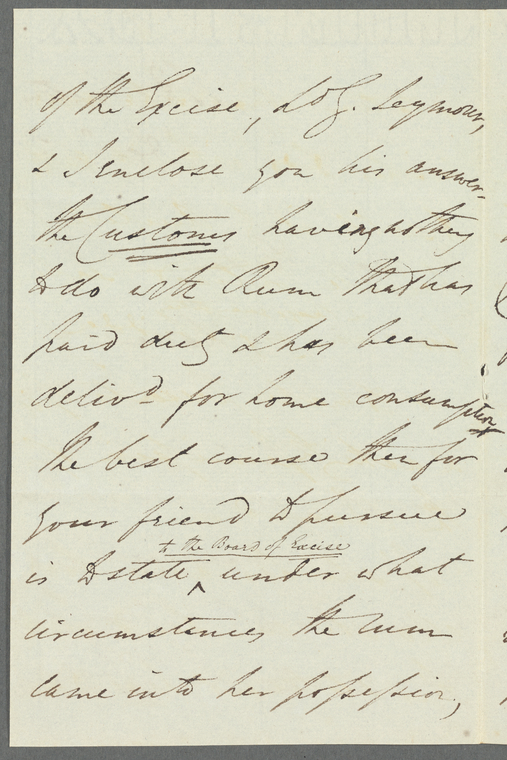 of the Excise, Ld G. Seymour,
& I enclose you his answer
the Customs having nothing
to do with Rum that has
paid duty & has been
delivd for home consumption
The best course then for
your friend to pursue
to the Board of Excise
is to state ^ under what
circumstances the rum
came into her possession,